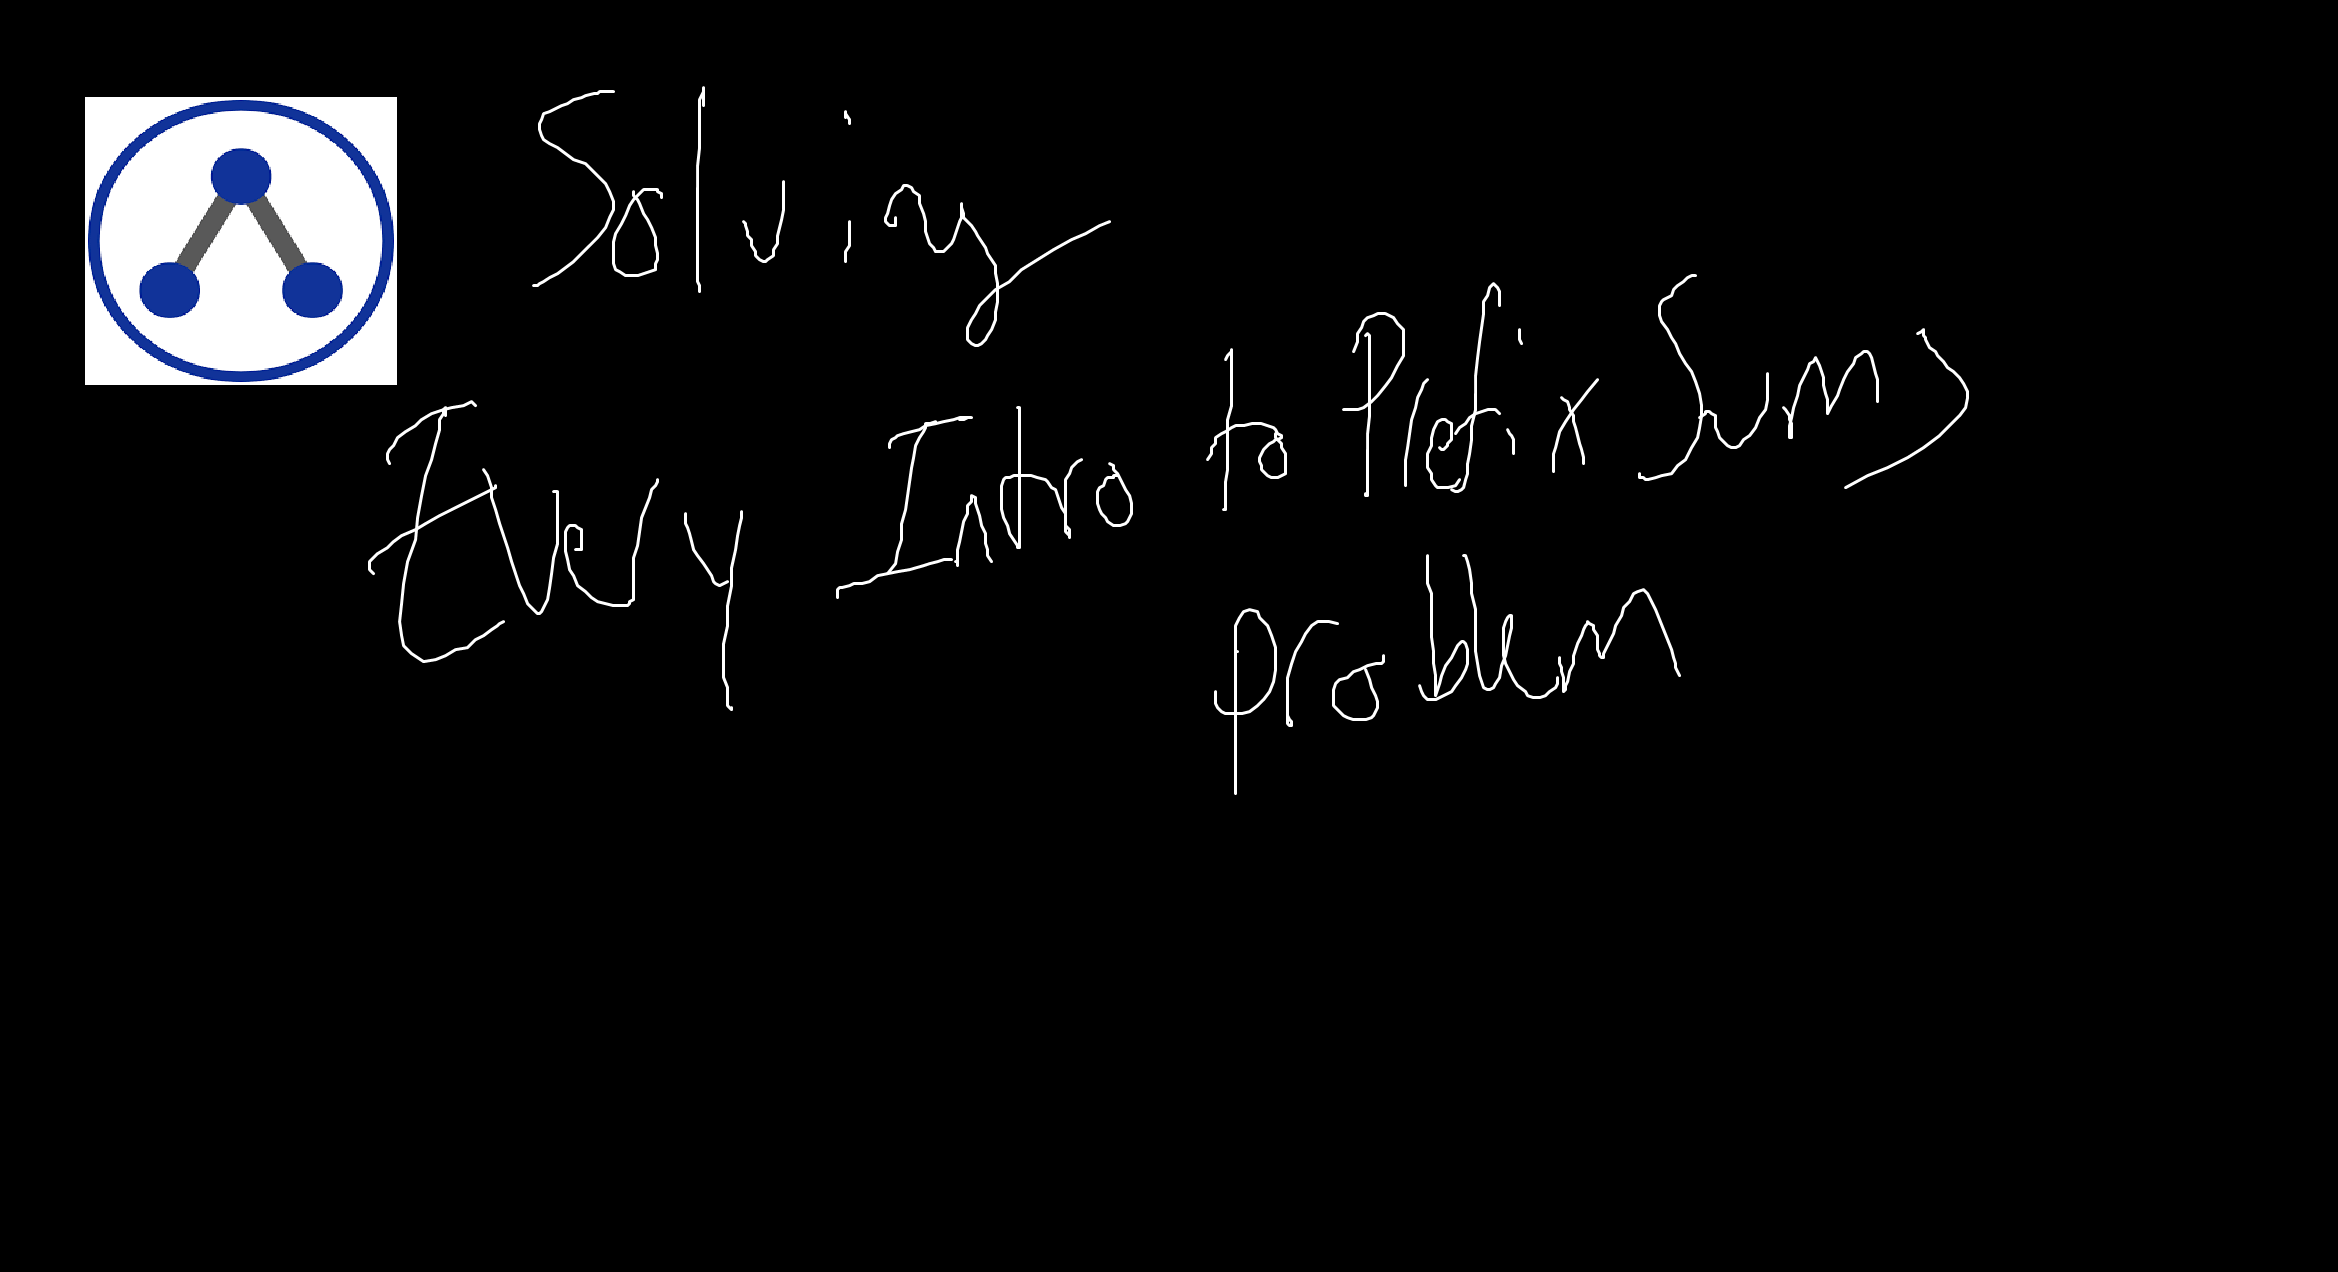 Solving
Every Intro to Prefix Sums
problem